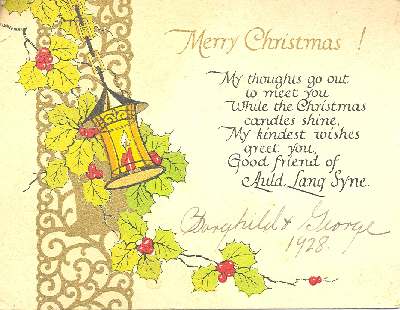 Merry Christmas !
My thoughts go out
to meet you
While the Christmas
candles shine,
My kindest wishes
greet you,
Good friend of
Auld Lang Syne.
Borghild & George
1928